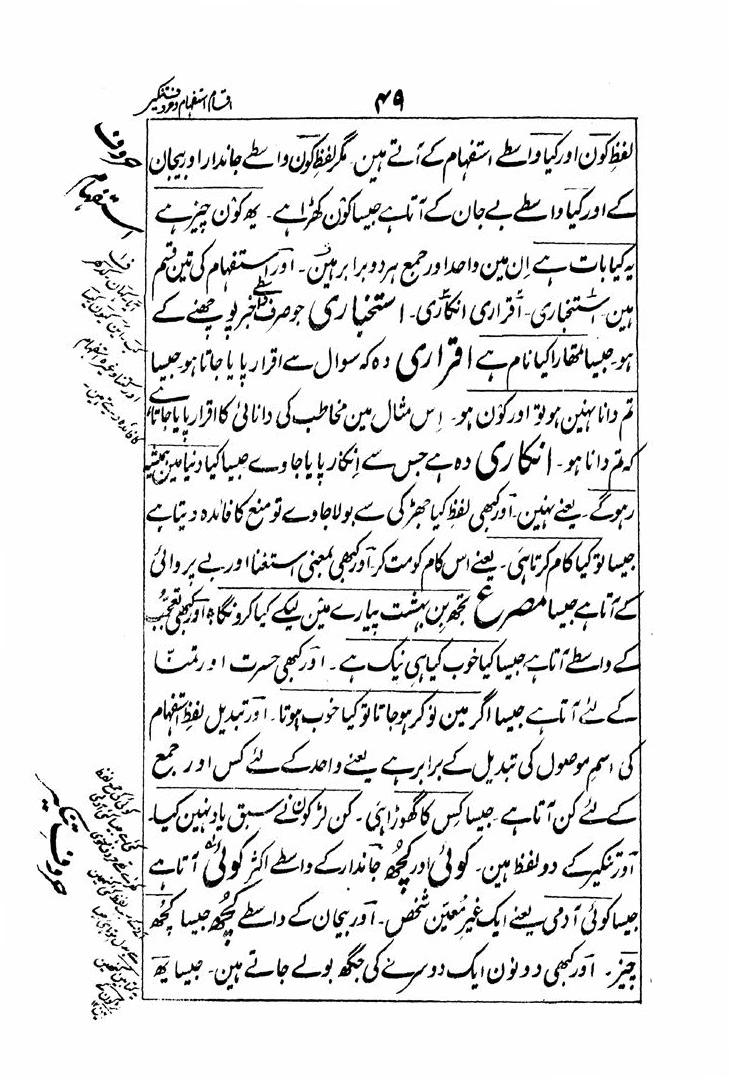 ۴۹
اقسام استفہام و حروف تنکیر
لفظ کون اور کیا واسطے استفہام کے آتے ہین۔ مگر لفظ کون واسطے جاندار اور بیجان
کے اور کیا واسطے بے جان کے آتا ہے جیسا کون کھڑا ہے۔ یھ کون چیز ہے
یہ کیا بات ہے اِن مین واحد اور جمع ہر دو برابر ہین۔ اور استفہام کی تین قسم
ہین۔ استخباری۔ اقراری انکاری۔ استخباری جو صرف واسطے خبر پوچھنے کے
ہو۔ جیسا تمھارا کیا نام ہے اقراری وہ کہ سوال سے اقرار پایا جاتا ہو جیسا
تم دانا نہین ہو تو اور کون ہو۔ اِس مثال مین مخاطب کی دانائی کا اقرار پایا جاتا ہے
کہ تم دانا ہو۔ انکاری وہ ہے جس سے اِنکار پایا جاوے جیسا کیا دنیا مین ہمیشہ
رہوگے۔ یعنے نہین۔ اور کبھی لفظ کیا جھڑکی سے بولا جاوے تو منع کا فائدہ دیتا ہے
جیسا تو کیا کام کرتا ہی۔ یعنے اس کام کو مت کر۔ اور کبھی بمعنی استغنا اور بے پروائی
کے آتا ہے جیسا مصرع تجھ بِن بہشت پیارے مین لیکے کیا کرونگا۔ اور کبھی تعجّب
کے واسطے آتا ہے جیسا کیا خوب کیا ہی نیک ہے۔ اور کبھی حسرت اور تمنّا
کے لئے آتا ہے جیسا اگر مین نوکر ہو جاتا تو کیا خوب ہوتا۔ اور تبدیل لفظ استفہام
کی اسمِ موصول کی تبدیل کے برابر ہے یعنے واحد کے لئے کس اور جمع
کے لئے کن آتا ہے۔ جیسا کِس کا گھوڑا ہی۔ کن لڑکون نے سبق یاد نہین کیا۔
اور تنکیر کے دو لفظ ہین۔ کوئی اور کُچھ جاندار کے واسطے اکثر کوئی آتا ہے
جیسا کوئی آدمی یعنے ایک غیر مُعیّن شخص۔ اور بیجان کے واسطے کُچھ جیسا کُچھ
چیز۔ اور کبھی دونون ایک دوسرے کی جگھ بولے جاتے ہین۔ جیسا یھ
حروف
استفہام
حروفِ تنکیر